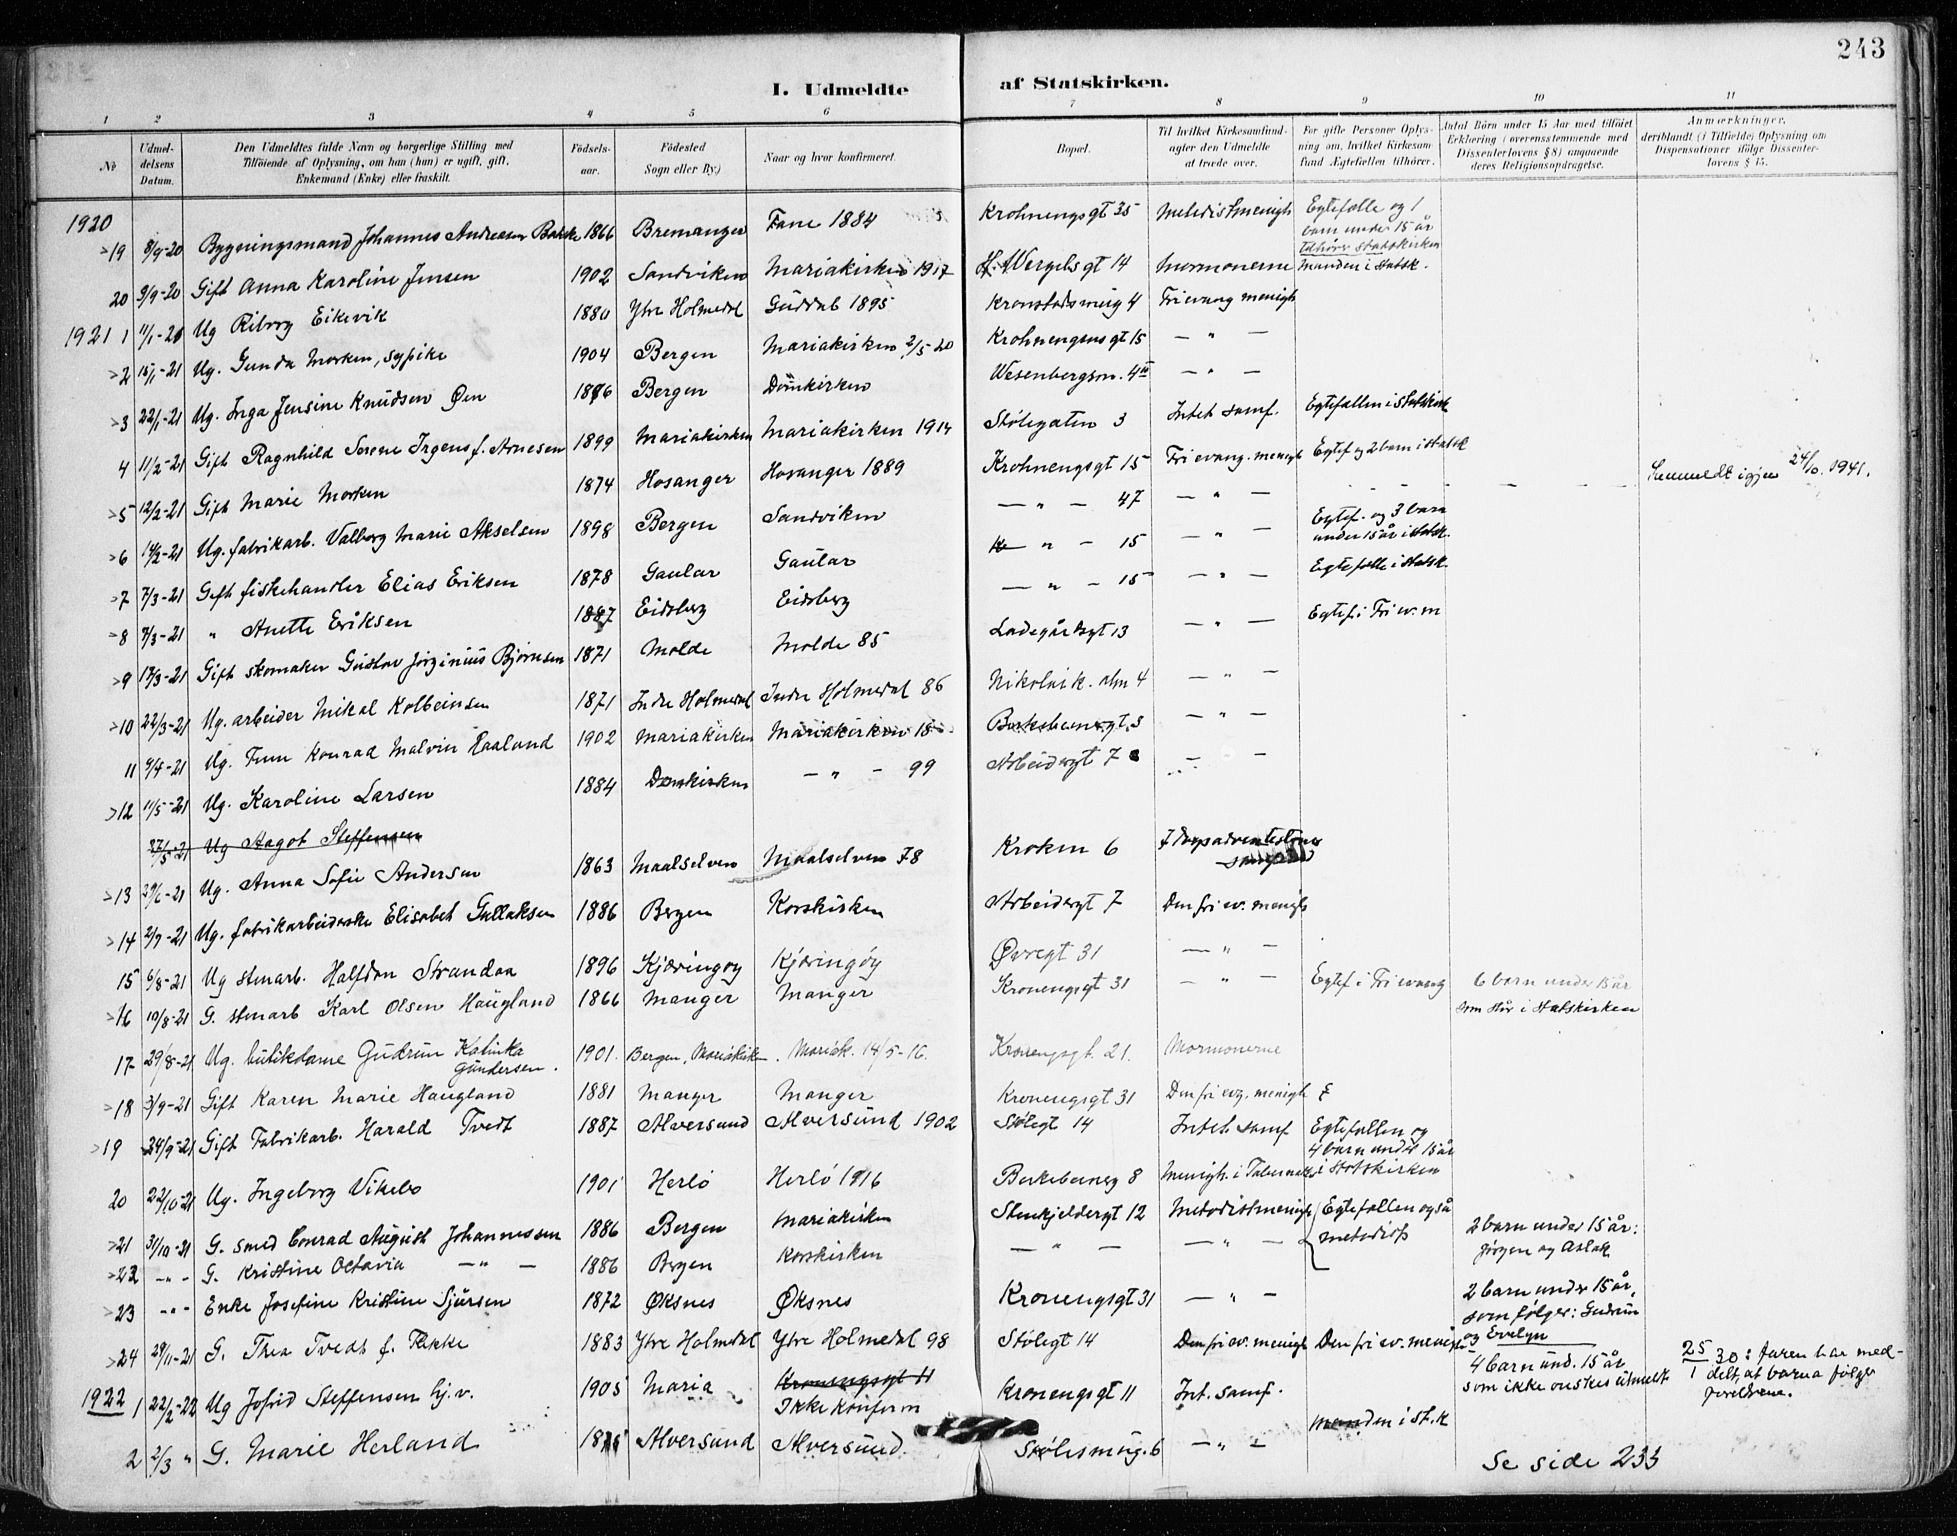 243
I. Udmeldte af Statskirken.
1 2 3 4 5 6 7 8 9 10 11
№ | Udmeldelsens Datum. | Den Udmeldtes fulde Navn og borgerlige Stilling med Tilföiende af Oplysning, om han (hun) er ugift, gift, Enkemand (Enke) eller fraskilt. | Födselsaar. | Födested Sogn eller By.) | Naar og hvor konfirmeret. | Bopæl. | Til hvilket Kirkesamfund agter den Udmeldte at træde over. | For gifte Personer Oplysning om, hvilket Kirkesamfund Ægtefællen tilhörer. | Antal Börn under 15 Aar med tilföiet Erklæring (overensstemmende med Dissenterlovens § 8) angaaende deres Religionsopdragelse. | Anmærkninger, deriblandt (i Tilfælde) Oplysning om Dispensationer ifölge Dissenterlovens § 15.
1920
19 8/9-20 Bygningsmand Johannes Andreasen Bakke 1866 Bremanger Fane 1884 Krohnengsgt 35 Metodistmenigh Egtefælle og 1 barn under 15 år tilhører statskirken
20 3/9-20 Gift Anna Karoline Jensen 1902 Sandviken Mariakirken 1917 H. Wergelsgt 14 Mormonerne Manden i Statsk.
1921 1 11/1-21 Ug Riborg Eikevik 1880 Ytre Holmedal Guddal 1895 Kronstadsmug 4 Fri evang menigh
2 15/1-21 Ug. Gunda Morken, sypike 1904 Bergen Mariakirken 2/5-20 Krohnengsgt 15 — " —
3 22/1-21 Ug. Inga Jensine Knudsen Øen 1876 Bergen Domkirken Wesenbergsm. 4 — " —
4 11/2-21 Gift Ragnhild Serene Irgens f. Arnesen 1899 Mariakirken Mariakirken 1914 Stølegaten 3 Intet samf. Egtefællen i Statskirk
5 12/2-21 Gift Marie Morken 1874 Hosanger Hosanger 1889 Krohnengsgt 15 Fri evang. menigh Egtef og 2 barn i statsk
6 14/2-21 Ug. fabrikarb. Valborg Marie Akselsen 1898 Bergen Sandviken — " — 47 — " — Innmeldt igjen 24/10. 1941.
7 7/3-21 Gift fiskehandler Elias Eriksen 1878 Gaular Gaular " — 15 — " — Egtef. og 3 barn under 15 år i statsk.
8 7/3-21 " Anette Eriksen 1887 Eidsberg Eidsberg — " — 15 — " — Egtefelle i statsk.
9 17/3-21 Gift skomaker Gustav Jørginius Bjørnsen 1871 Molde Molde 85 Ladegårdsgt 13 — " — Egtef. i Fri ev. m
10 22/3-21 Ug. arbeider Mikal Kolbeinsen 1871 Indre Holmedal Indre Holmedal 86 Nikolaik. alm 4 — " —
11 9/4-21 Ug. Konrad Malvin Haaland 1902 Mariakirken Mariakirken 18 Birkebeinergt. 3 — " —
12 11/5-21 Ug. Karoline Larsen 1884 Domkirken — " — 99 Arbeidergt 7 — —
27/5-21 Ug Aagot Steffensen
13 29/6-21 Ug. Anna Sofie Andersen 1863 Maalselven Maalselven 78 Kroken 6 7 dagsadventistenes
14 2/7-21 Ug. fabrikarbeiderske Elisabet Gullaksen 1886 Bergen Korskirken Arbeidergt 7 Den fri ev. menigh
15 6/8-21 Ug stuarb. Halfdan Strandaa 1896 Kjæringøy Kjæringøy Øvregt 31 — " —
16 10/8-21 G. stuarb Karl Olsen Haugland 1866 Manger Manger Kronengsgt 31 — " — Egtef i Fri evang 6 barn under 15 år som står i Statskirken
17 29/8-21 Ug. butikdame Gudrun Katinka Gundersen. 1901. Bergen, Mariakirken. Mariak. 14/5-16. Kronengsgt. 21. Mormonerne
18 3/9-21 Gift Karen Marie Haugland 1881 Manger Manger Kronengsgt 31 Den fri evg. menigh
19 24/9-21 Gift Fabrikarb. Harald Tvedt 1887 Alversund Alversund 1902 Stølegt 14 Intet samf Egtefællen og 4 barn under 15 år i Statskirken
20 22/10-21 Ug. Ingeborg Vikebø 1901 Herlø Herlø 1916 Berkebeinerg 8 Menigh. i Tabernaklet
21 31/10-21 G. smed Conrad August Johannessen 1886 Bergen Mariakirken Stenkjeldergt 12 Metodistmenigh Egtefællen også metodist 2 barn under 15 år: Jørgen og Aslak
22 -"- G. Kristine Octavia — " — 1886 Bergen Korskirken — " — — " —
23 -"- Enke Josefine Kristine Sjursen 1872 Øksnes Øksnes Kronengsgt 31 — " — 2 barn under 15 år, som følger: Gudrun og Evelyn
24 29/11-21 G. Thea Tvedt f. Flekke 1883 Ytre Holmedal Ytre Holmedal 98 Stølegt 14 Den fri ev. menigh Den fri ev. menigh 4 barn und. 15 år som ikke ønskes utmeldt 25/1 30: faren har meddelt, at barna følger foreldrene.
1922 1 22/2-22 Ug Jofrid Steffensen hj.v. 1905 Maria Kronengsgt 11 Ikke konform Kronengsgt 11 Int. samf.
2 2/3 " G. Marie Herland Alversund Alversund. Stølesmug. 6 — " — manden i st.k
Se side 233